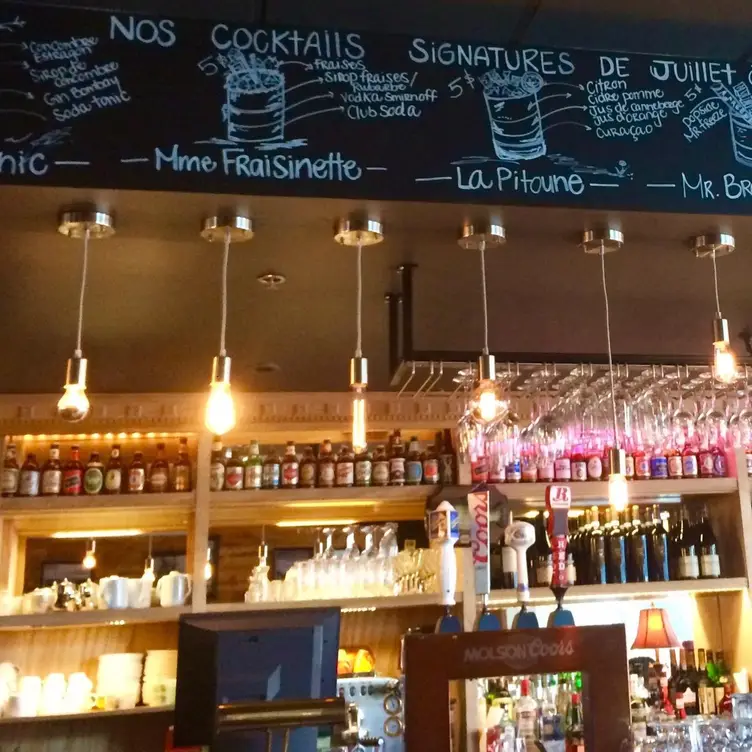 NOS COCKTAILS SIGNATURES DE JUILLET
Concombre
Estragon
Sirop de
concombre
Gin Bombay
Soda-tonic
NIC
5$
FRAISES
SIROP FRAISES/
RUBARBE
VODKA SMIRNOFF
CLUB SODA
Mme FRAISINETTE
5$
Citron
Cidre pomme
Jus de canneberge
Jus d'orange
Curaçao
La Pitoune
5$
POPSICLE
MR. FREEZE
MR. BR
Coors
MOLSON Coors